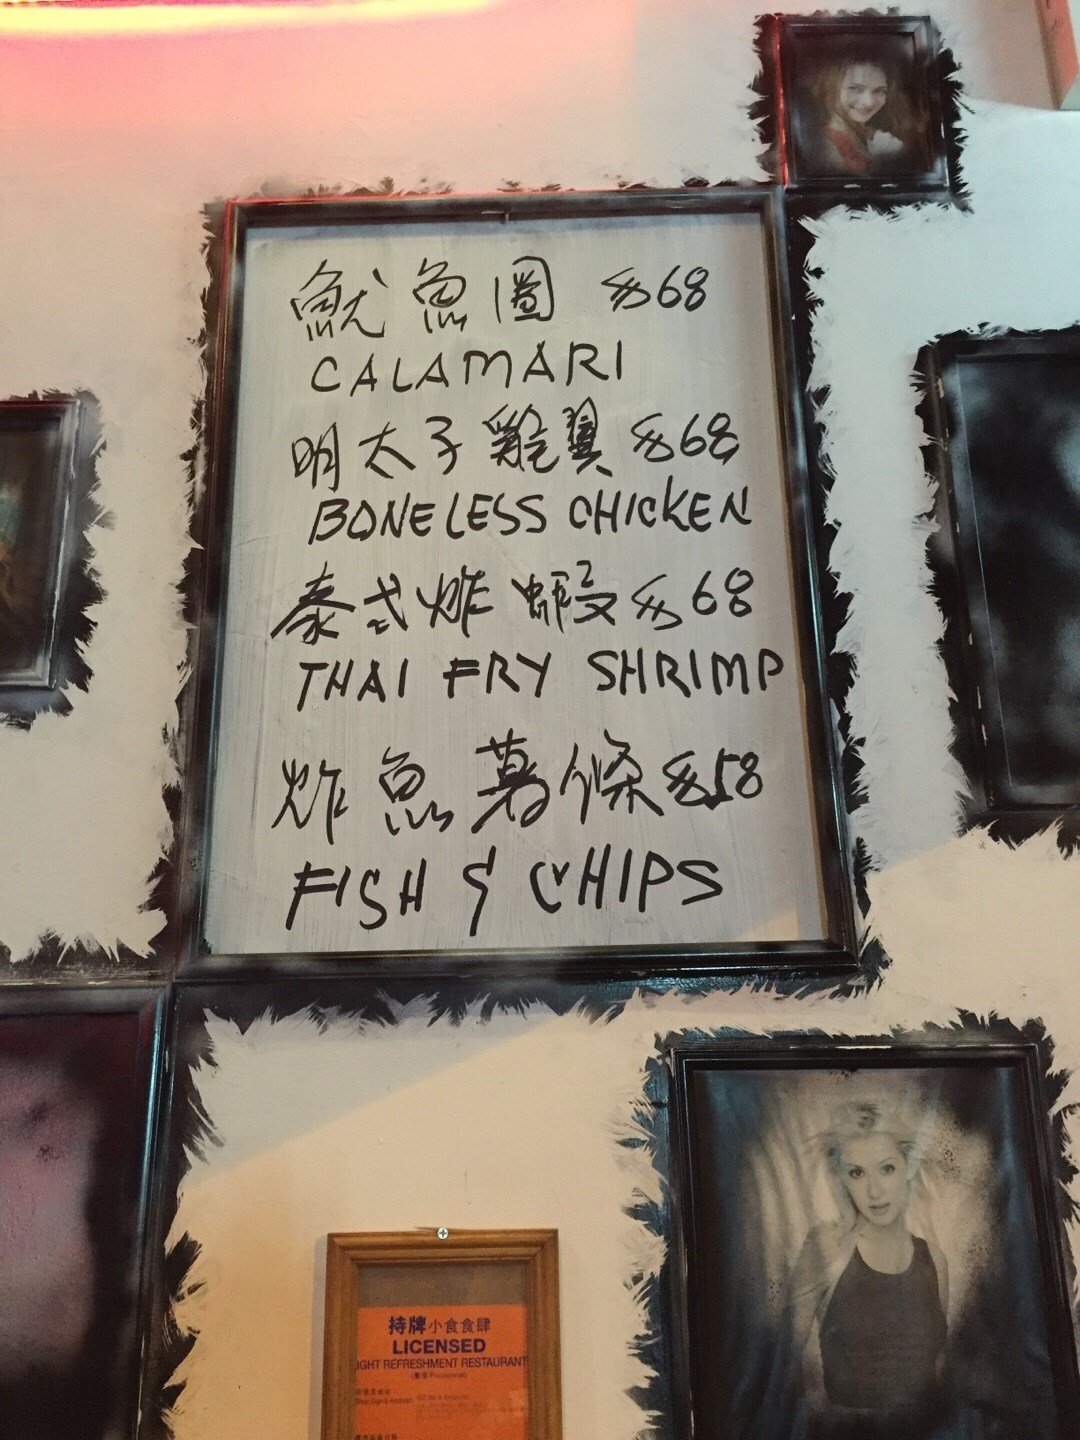 魷魚圈 $68
CALAMARI
明太子雞翼 $68
BONELESS CHICKEN
泰式炸蝦 $68
THAI FRY SHRIMP
炸魚薯條 $58
FISH & CHIPS
持牌小食食肆
LICENSED
IGHT REFRESHMENT RESTAURANT
(暫准 Provisional)